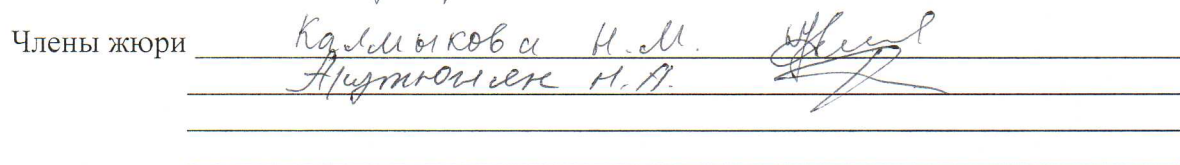 Члены жюри Калмыкова Н.М.
Арутюнян Н.А.